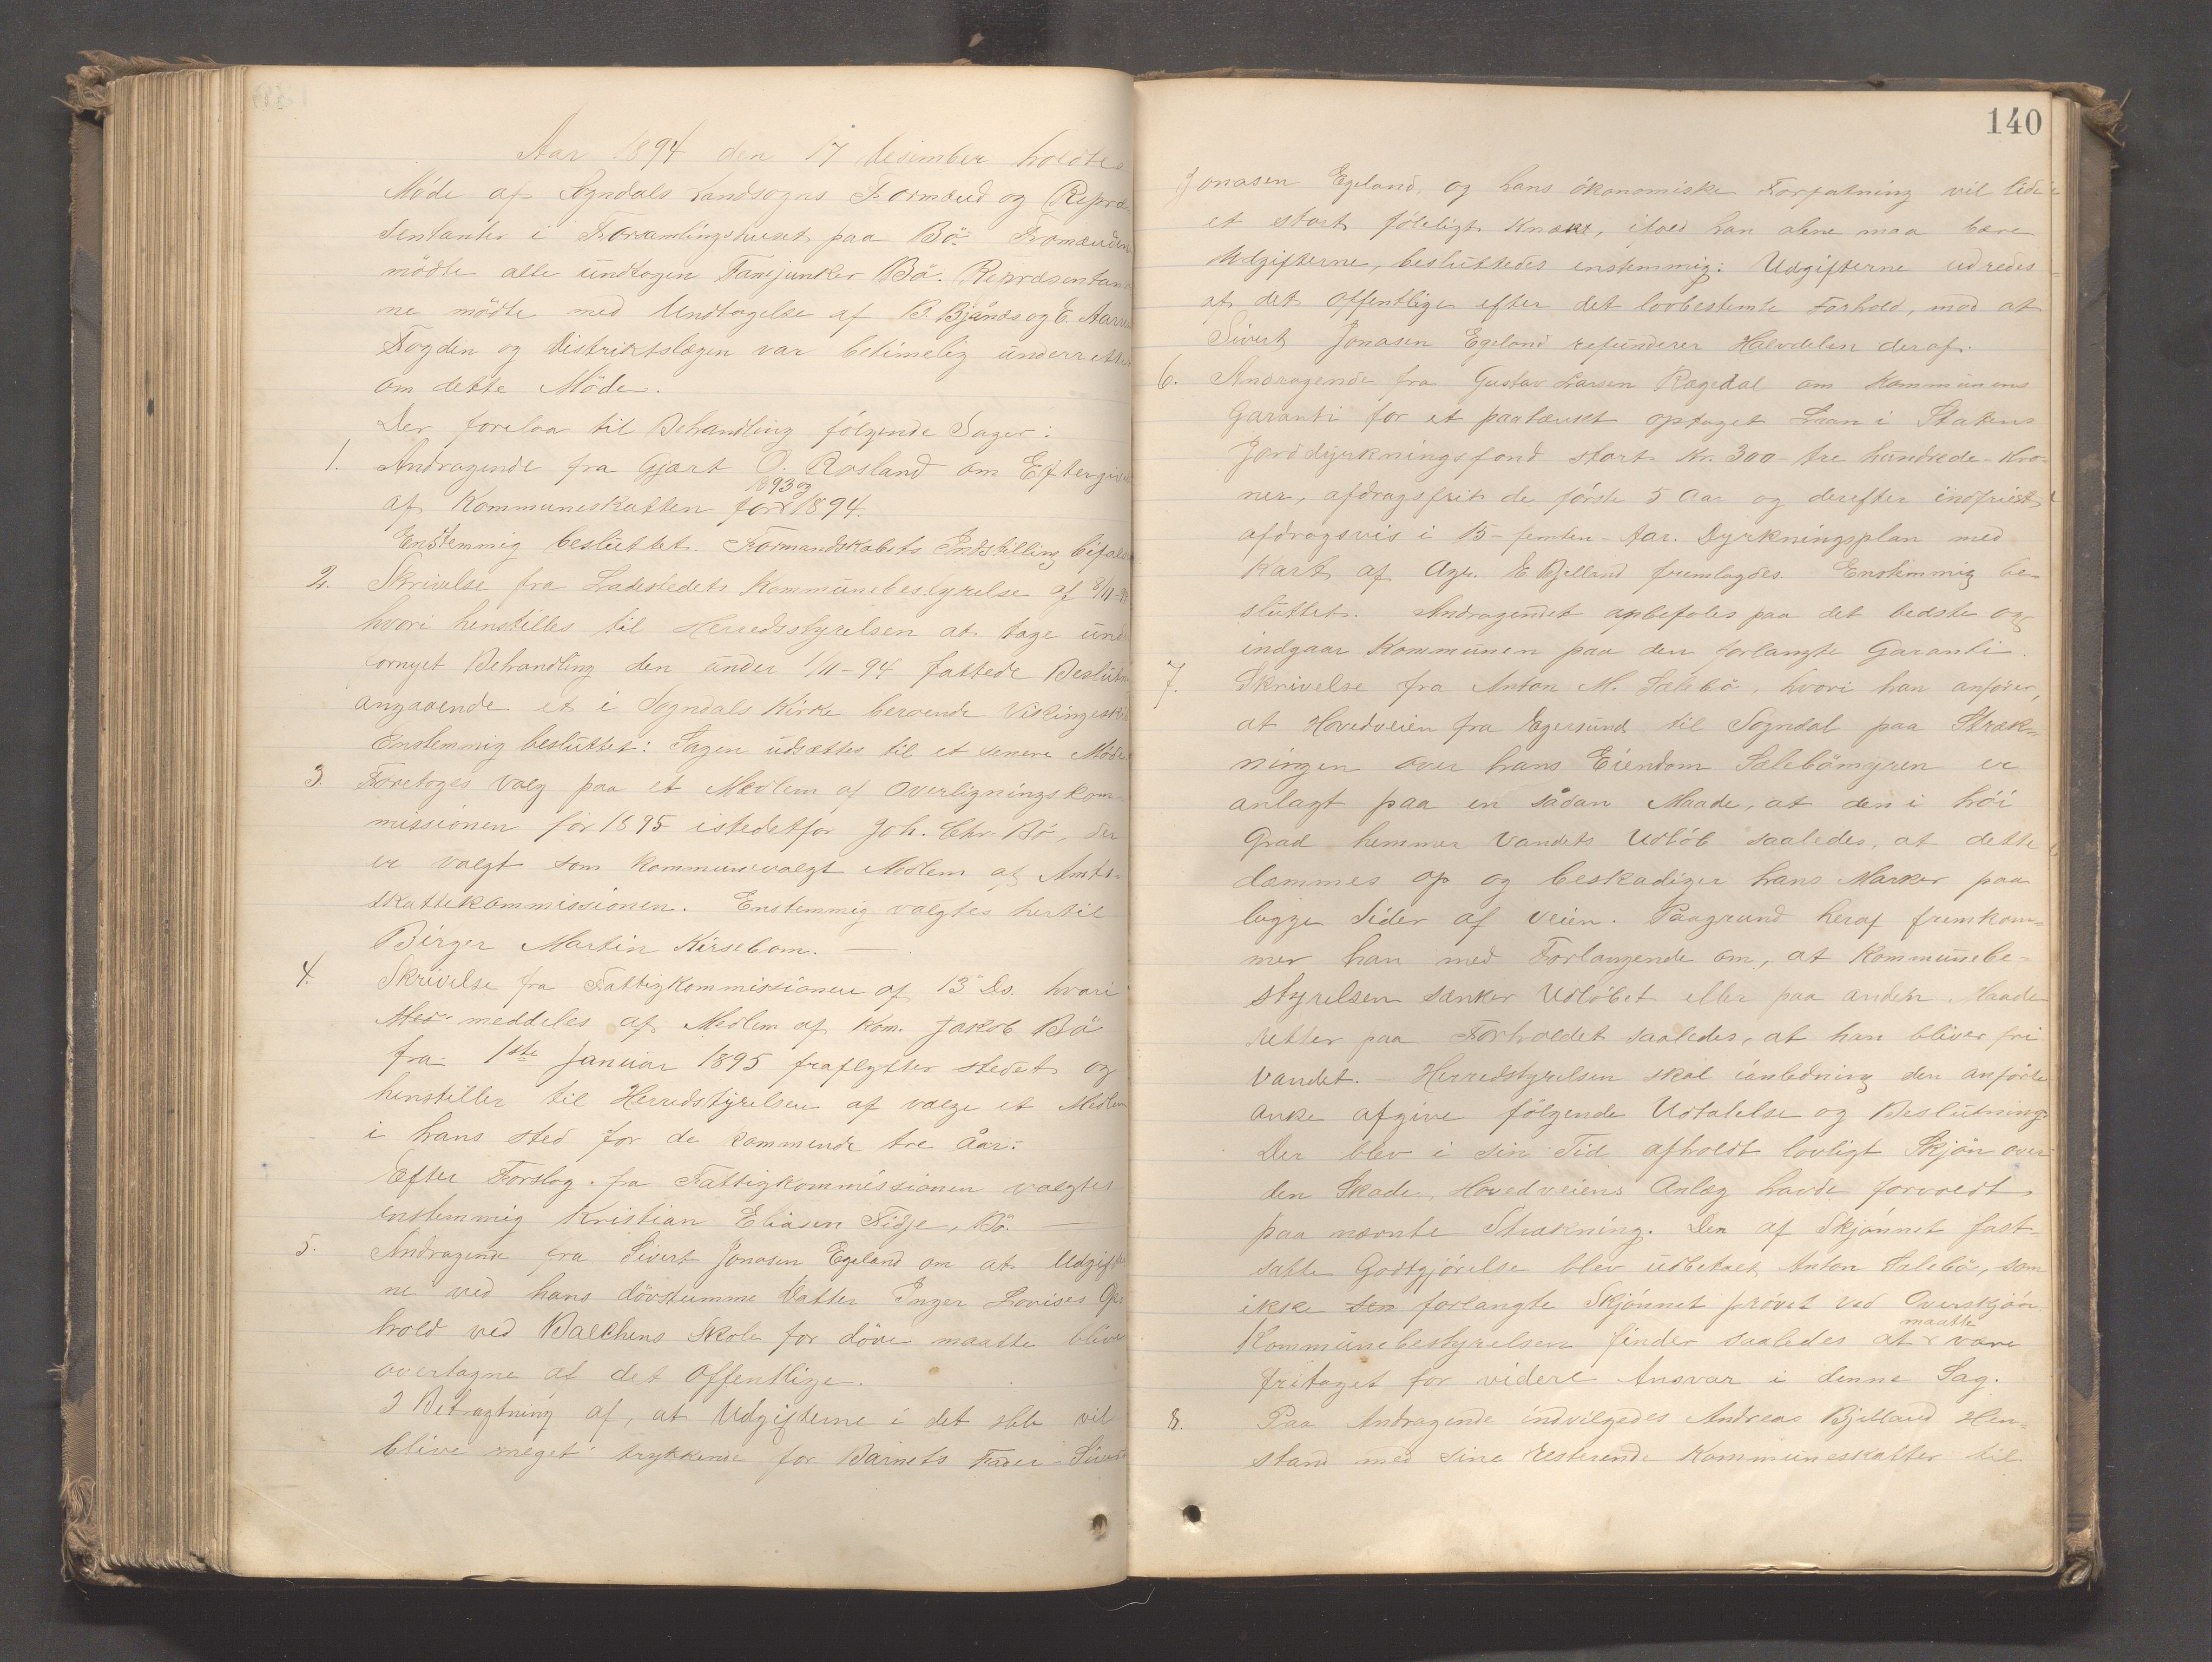 Aar 1894 den 17 Desember holdtes
Möde af Sogndals Landsogns Formænd og Repræ-
sentanter i Forsamlingshuset paa Bö. Fromænden
mödte alle undtagen Fanejunker Bö. Repræsentan
ne mödte med Undtagelse af B. Bjånes og E. Aarre
Fogden og Distriktslægen var betimelig underrettet
om dette Möde.
Der forelaa til Behandling fölgende Sager:
1. Andragende fra Gjært O. Rosland om Eftergivel
1893 og
af Kommuneskatten for 1894.
Enstemmig besluttet. Formandskabets Indstilling bifal
2. Skrivelse fra Ladestedets Kommunebestyrelse af 8/11-94
hvori henstilles til Herredsstyrelsen at tage und
fornyet Behandling den under 1/11-94 fattede Beslutn
angaaende et i Sogndals Kirke beroende Vikingeski
Enstemmig besluttet: Sagen udsættes til et senere Möde
3. Foretoges valg paa et Medlem af Overligningskom-
missionen for 1895 istedetfor Joh. Chr. Bö, der
er valgt som kommunevalgt Medlem af Amts-
skattekommissionen. Enstemmig valgtes hertil
Birger Martin Kirsebom. —
4. Skrivelse fra Fattigkommissionen af 13 Ds. hvori
Med meddeles af Medlem af Kom. Jakob Bö
fra 1ste Januar 1895 fraflytter stedet og
henstiller til Herredstyrelsen af vælge et Medlem
i hans sted for de kommende tre Åar.
Efter Forslag fra Fattigkommissionen valgtes
enstemmig Kristian Eliasen Fidje, Bö. —
5. Andragende fra Sivert Jonasen Egeland om at Udgifter
ne ved hans dövstumme Datter Inger Lovises Op
hold ved Balchens Skole for döve maatte blive
overtagne af det offentlige.
I Betragtning af, at Udgifterne i det hele vil
blive meget trykkende for Barnets Fader - Sivert
140
Jonasen Egeland, og hans ökonomiske Forfatning vil lide
et stort föleligt Knæk, ifald han alene maa bære
Udgifterne, besluttedes enstemmig: Udgifterne udredes
af det Offentlige efter det lovbestemte Forhold, mod at
Sivert Jonasen Egeland refunderer Halvdelen deraf.
6. Andragende fra Gustav Larsen Rægedal om Kommunens
Garanti for et paatænkt optaget Laan i Statens
Jorddyrkningsfond stort Kr. 300 - tre hundrede - Kro-
ner, afdragsfrit de förste 5 Aar og derefter indfriet
afdragsvis i 15 - femten - Aar. Dyrkningsplan med
Kart af Agr. E. Bjelland fremlagdes. Enstemmig be-
sluttet. Andragendet anbefales paa det bedste og
indgaar Kommunen paa den forlangte Garanti.
7. Skrivelse fra Anton M. Salebö, hvori han anförer,
at Hovedveien fra Egersund til Sogndal paa Stræk-
ningen over hans Eiendom Salebömyren er
anlagt paa en sådan Maade, at den i höi
Grad hemmer Vandets Udlöb saaledes, at dette
dæmmes op og beskadiger hans Marker paa
begge Sider af Veien. Paagrund heraf fremkom-
mer han med Forlangende om, at Kommunebe-
styrelsen sænker Udlöbet eller paa anden Maade
retter paa Forholdet saaledes, at han bliver fri
Vandet. — Herredstyrelsen skal i anledning den anförte
anke afgive fölgende Udtalelse og Beslutning:
Der blev i sin Tid afholdt lovligt Skjön over
den Skade, Hovedveiens Anlæg havde forvoldt
paa nævnte Strækning. Den af Skjönnet fast-
satte Godtgjörelse blev udbetalt Anton Salebö, som
ikke sen forlangte Skjönnet prövet ved Overskjön.
maatte
Kommunebestyrelsen finder saaledes at være
fritaget for videre Ansvar i denne Sag.
8. Paa Andragende indvilgedes Andreas Bjelland Hen-
stand med sine resterende Kommuneskatter til